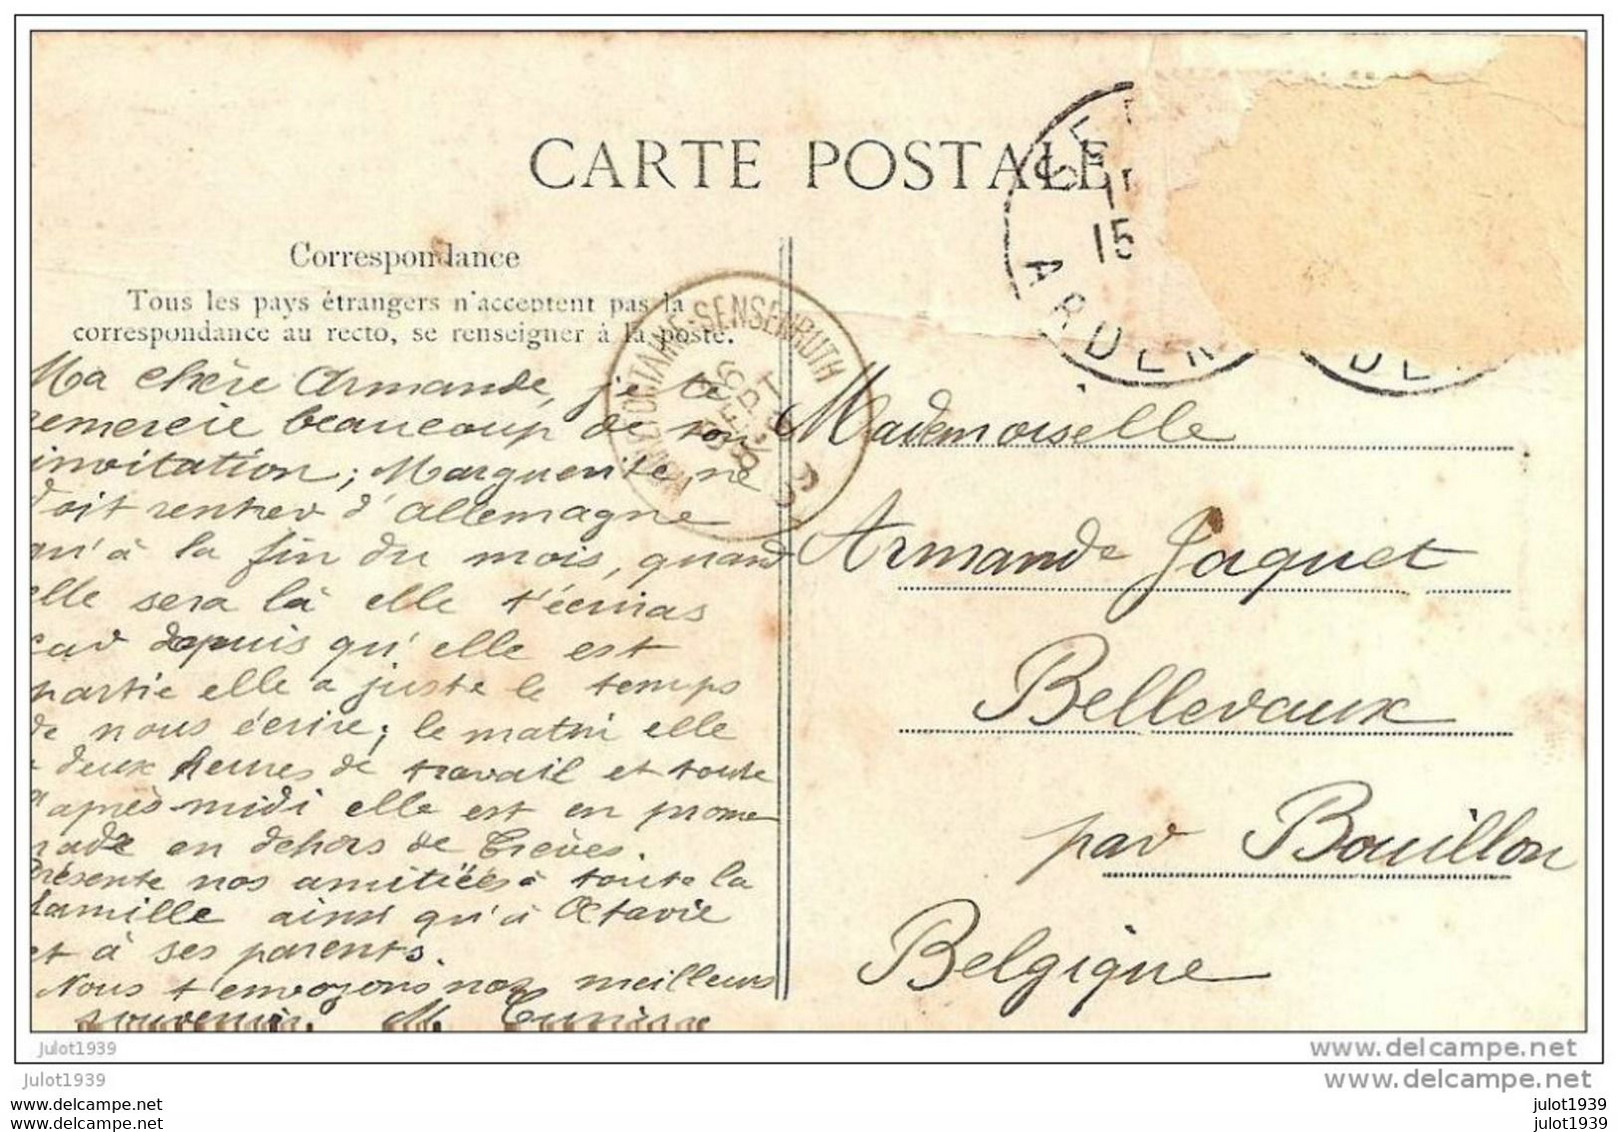 CARTE POSTALE
Correspondance
Tous les pays étrangers n'acceptent pas la
correspondance au recto, se renseigner à la poste.
Ma chère Armande, je te
remercie beaucoup de ton
invitation; Marguerite, ne
doit rentrer d'allemagne
qu'à la fin du mois, quand
elle sera là elle t'écriras
car depuis qu'elle est
partie elle a juste le temps
de nous écrire; le matin elle
a deux heures de travail et toute
l'après-midi elle est en prome
nade en dehors de Trèves.
Présente nos amitiées à toute la
famille ainsi qu'à Octavie
et à ses parents.
Nous t'envoyons nos meilleurs
souvenirs. M
Mademoiselle
Armande Jaquet
Bellevaux
par Bouillon
Belgique
FONTAINE-SENSENRUTH
6
SEPT
15
ARDEN
DE
julot1939
www.delcampe.net
julot1939
www.delcampe.net
www.delcampe.com
www.delcampe.com
julot1939
julot1939